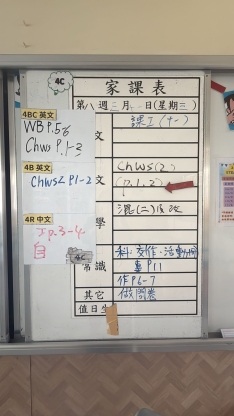 4C
家課表
第八週三月 日(星期三)
4BC 英文
WB P.56
Chws P.1-3
文
課工(十一)
4B 英文
Chws2 P1-2
文
Chws(2)
(P.1,2)
4R 中文
P.3-4
自
4C
學
混(二)反改
常識
科:交作、活動
P11
作P6-7
其它
做問卷
值日生